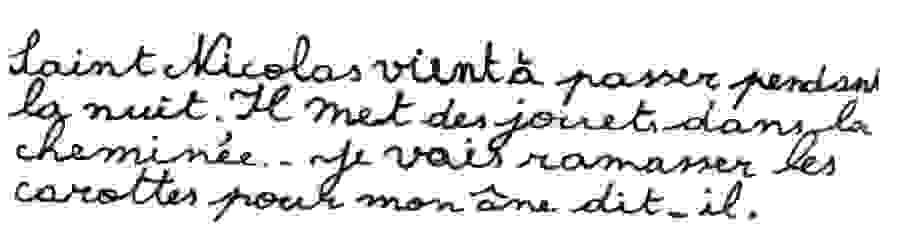 Saint Nicolas vient à passer pendant
la nuit. Il met des jouets dans la
cheminée. - Je vais ramasser les
carottes pour mon âne dit-il.